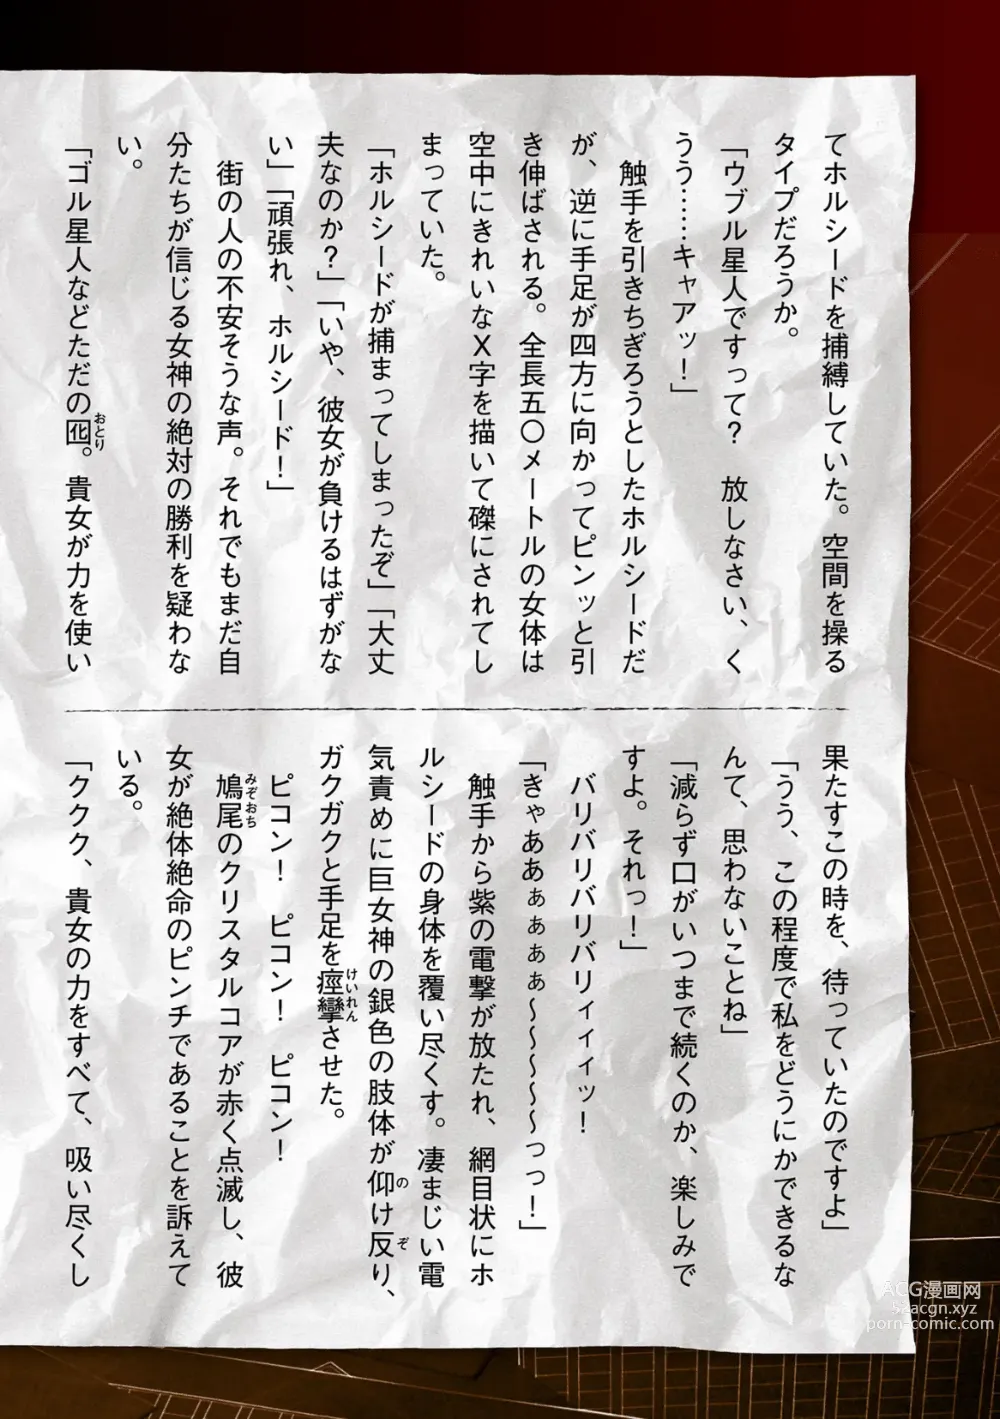 てホルシードを捕縛していた。空間を操る
タイプだろうか。
「ウブル星人ですって？　放しなさい、く
うう……キャアッ！」
　触手を引きちぎろうとしたホルシードだ
が、逆に手足が四方に向かってピンッと引
き伸ばされる。全長五〇メートルの女体は
空中にきれいなＸ字を描いて磔にされてし
まっていた。
「ホルシードが捕まってしまったぞ」「大丈
夫なのか？」「いや、彼女が負けるはずがな
い」「頑張れ、ホルシード！」
　街の人の不安そうな声。それでもまだ自
分たちが信じる女神の絶対の勝利を疑わな
い。
「ゴル星人などただの囮。貴女が力を使い
おとり
果たすこの時を、待っていたのですよ」
「うう、この程度で私をどうにかできるな
んて、思わないことね」
「減らず口がいつまで続くのか、楽しみで
すよ。それっ！」
　バリバリバリバリバリィィィッ！
「きゃああぁぁぁぁ～～～～～っっ！」
　触手から紫の電撃が放たれ、網目状にホ
ルシードの身体を覆い尽くす。凄まじい電
気責めに巨女神の銀色の肢体が仰け反り、
の ぞ
ガクガクと手足を痙攣させた。
けいれん
　ピコン！　ピコン！　ピコン！
　鳩尾のクリスタルコアが赤く点滅し、彼
みぞおち
女が絶体絶命のピンチであることを訴えて
いる。
「ククク、貴女の力をすべて、吸い尽くし
ACG漫画网
52acgn.xyz
porn-comic.com